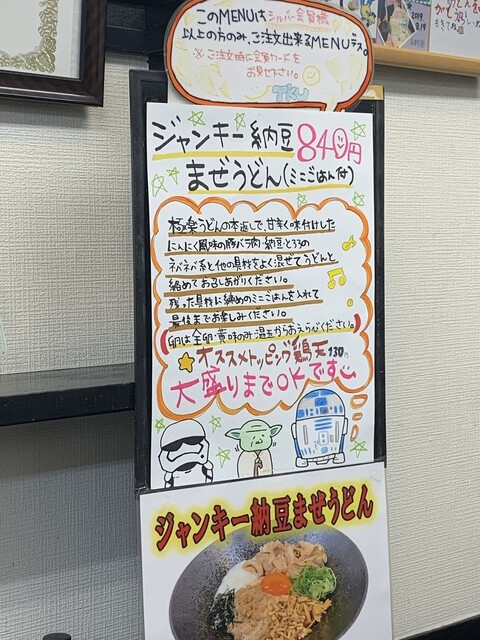 このMENUはシルバー会員様
以上の方のみ、ご注文出来るMENUデス。
※ご注文時に会員カードを
お見せ下さい。
ジャンキー納豆 840円
まぜうどん(ミニごはん付)
極楽うどんの本返しで、甘辛く味付けした
にんにく風味の豚バラ肉・納豆・とろろの
ネバネバ系と他の具材をよく混ぜてうどんと
絡めてお召しあがりください。
残った具材に締めのミニごはんを入れて
最後までお楽しみください。
(卵は全卵・黄味のみ・温玉からおえらびください。)
オススメトッピング鶏天130円
大盛りまでOKです
ジャンキー納豆まぜうどん